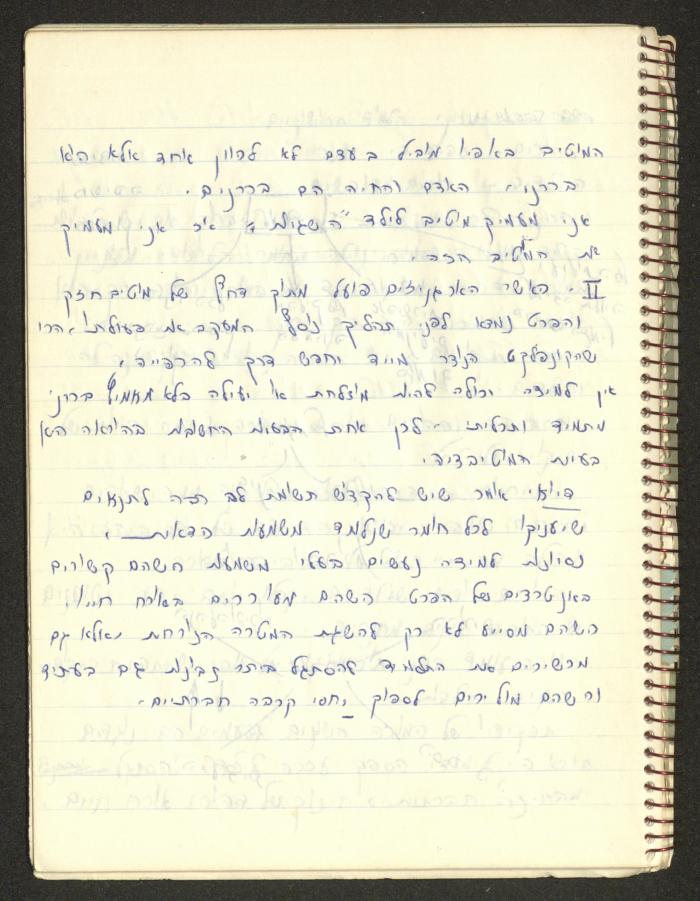 המוטיב באופיו מוביל בעצם לא לכוון אחד אלא הוא
ברכני. האדם והחיה הם ברכנים.
אני מעמיק מוטיב לילד "השגיות" איך אני מעמיק
את המוטיב הזה.
II. כאשר האורגניזים פועל מתוך דחף של מוטיב חזק
והפרט נמצא לפני תהליך נוסף המעקב את פעולתו, הרי
שהקונפלקט הנוצר מייד יחפש דרך להרפייה.
אין למידה יכולה להיות מוצלחת או יעילה בלא מאמץ
מתמיד ותכליתי - לכן אחת הבעיות החשובות בהוראה היא
בעית המוטיבציה.
דיואי אומר שיש להקדיש תשומת לב רבה לתנאים
שיעניקו לכל חומר שנלמד משמעות
נסיונות למידה נעשים בעלי משמעות כשהם קשורים
באנטרסים של הפרט כשהם מעורבים באורח חייו.
כשהם מסייע לא רק להשגת המטרה הנוכחית אלא גם
מכשירים את התלמיד להסתגל ביתר נבונות גם בעתיד
וכשהם מוליכים לספוק יחסי קרבה חברתיים.